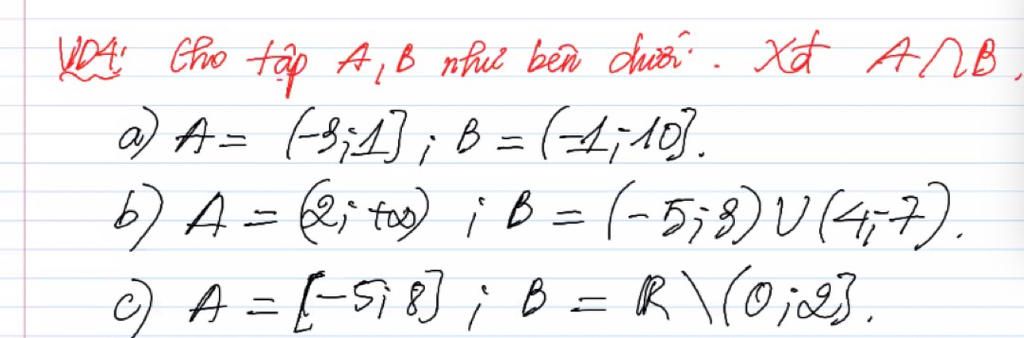 VD4: Cho tập A, B như bên dưới. Xđ A∩B.
a) A = (-3;1] ; B = (-1;10].
b) A = (2; +∞) ; B = (-5;3) ∪ (4;7).
c) A = [-5; 8] ; B = ℝ \ (0;2].